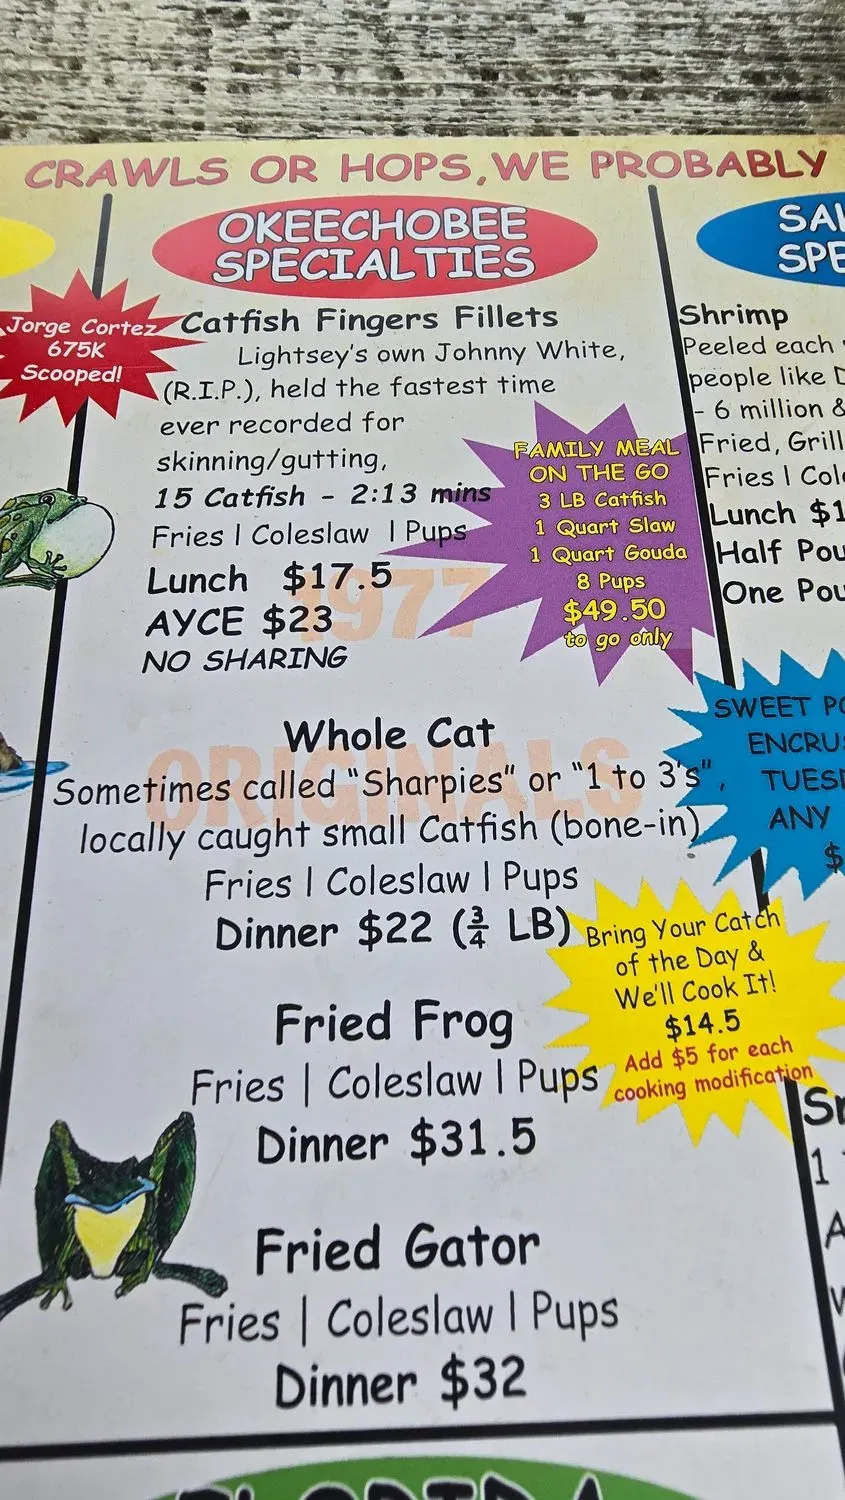 CRAWLS OR HOPS, WE PROBABLY
OKEECHOBEE
SPECIALTIES
Jorge Cortez
675K
Scooped!
Catfish Fingers Fillets
Lightsey's own Johnny White,
(R.I.P.), held the fastest time
ever recorded for
skinning/gutting,
15 Catfish - 2:13 mins
Fries | Coleslaw | Pups
Lunch $17.5
AYCE $23
NO SHARING
1977
ORIGINALS
FAMILY MEAL
ON THE GO
3 LB Catfish
1 Quart Slaw
1 Quart Gouda
8 Pups
$49.50
to go only
Whole Cat
Sometimes called "Sharpies" or "1 to 3's",
locally caught small Catfish (bone-in)
Fries | Coleslaw | Pups
Dinner $22 (¾ LB)
Bring Your Catch
of the Day &
We'll Cook It!
$14.5
Add $5 for each
cooking modification
Fried Frog
Fries | Coleslaw | Pups
Dinner $31.5
Fried Gator
Fries | Coleslaw | Pups
Dinner $32
Shrimp
Peeled each
people like
- 6 million &
Fried, Grill
Fries |
Lunch $1
Half
One
SWEET
ANY
$
1